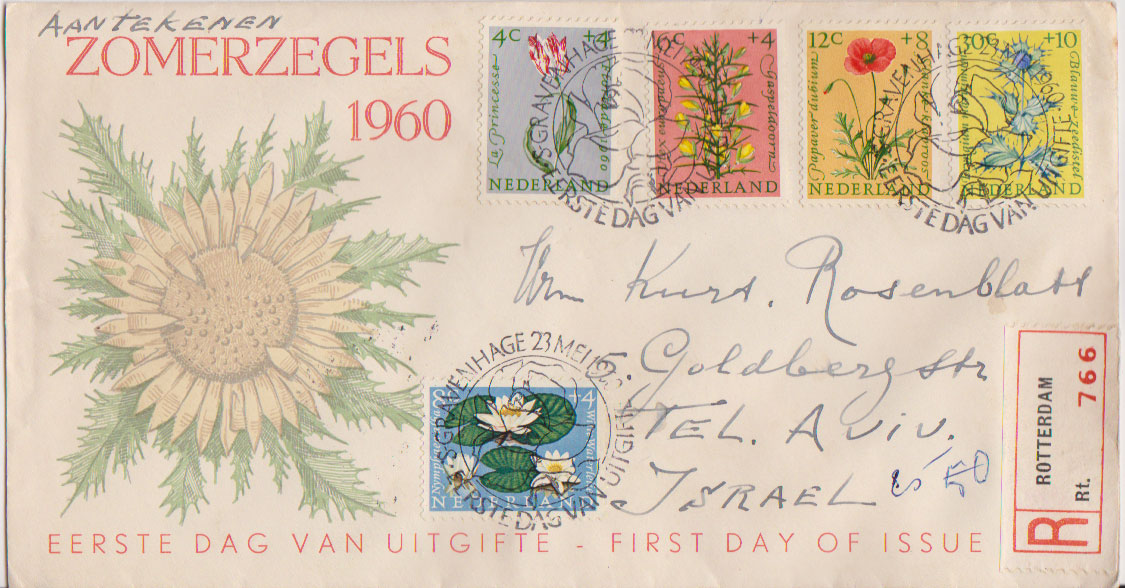 AANTEKENEN
ZOMERZEGELS
1960
4C +4
La Princesse
NEDERLAND
6C +4
Ulex europaeus
Gaspeldoorn
NEDERLAND
12C +8
Papaver dubium
NEDERLAND
30C +10
Blauwe zeedistel
NEDERLAND
'S GRAVENHAGE 23 MEI 1960
EERSTE DAG VAN UITGIFTE
'S GRAVENHAGE 23 MEI 1960
EERSTE DAG VAN UITGIFTE
Kurt. Rosenblatt
5. Goldberg str
TEL. AVIV.
ISRAEL
50
'S GRAVENHAGE 23 MEI 1960
EERSTE DAG VAN UITGIFTE
8C +4
Witte Waterlelie
NEDERLAND
R
ROTTERDAM
Rt. 766
EERSTE DAG VAN UITGIFTE - FIRST DAY OF ISSUE